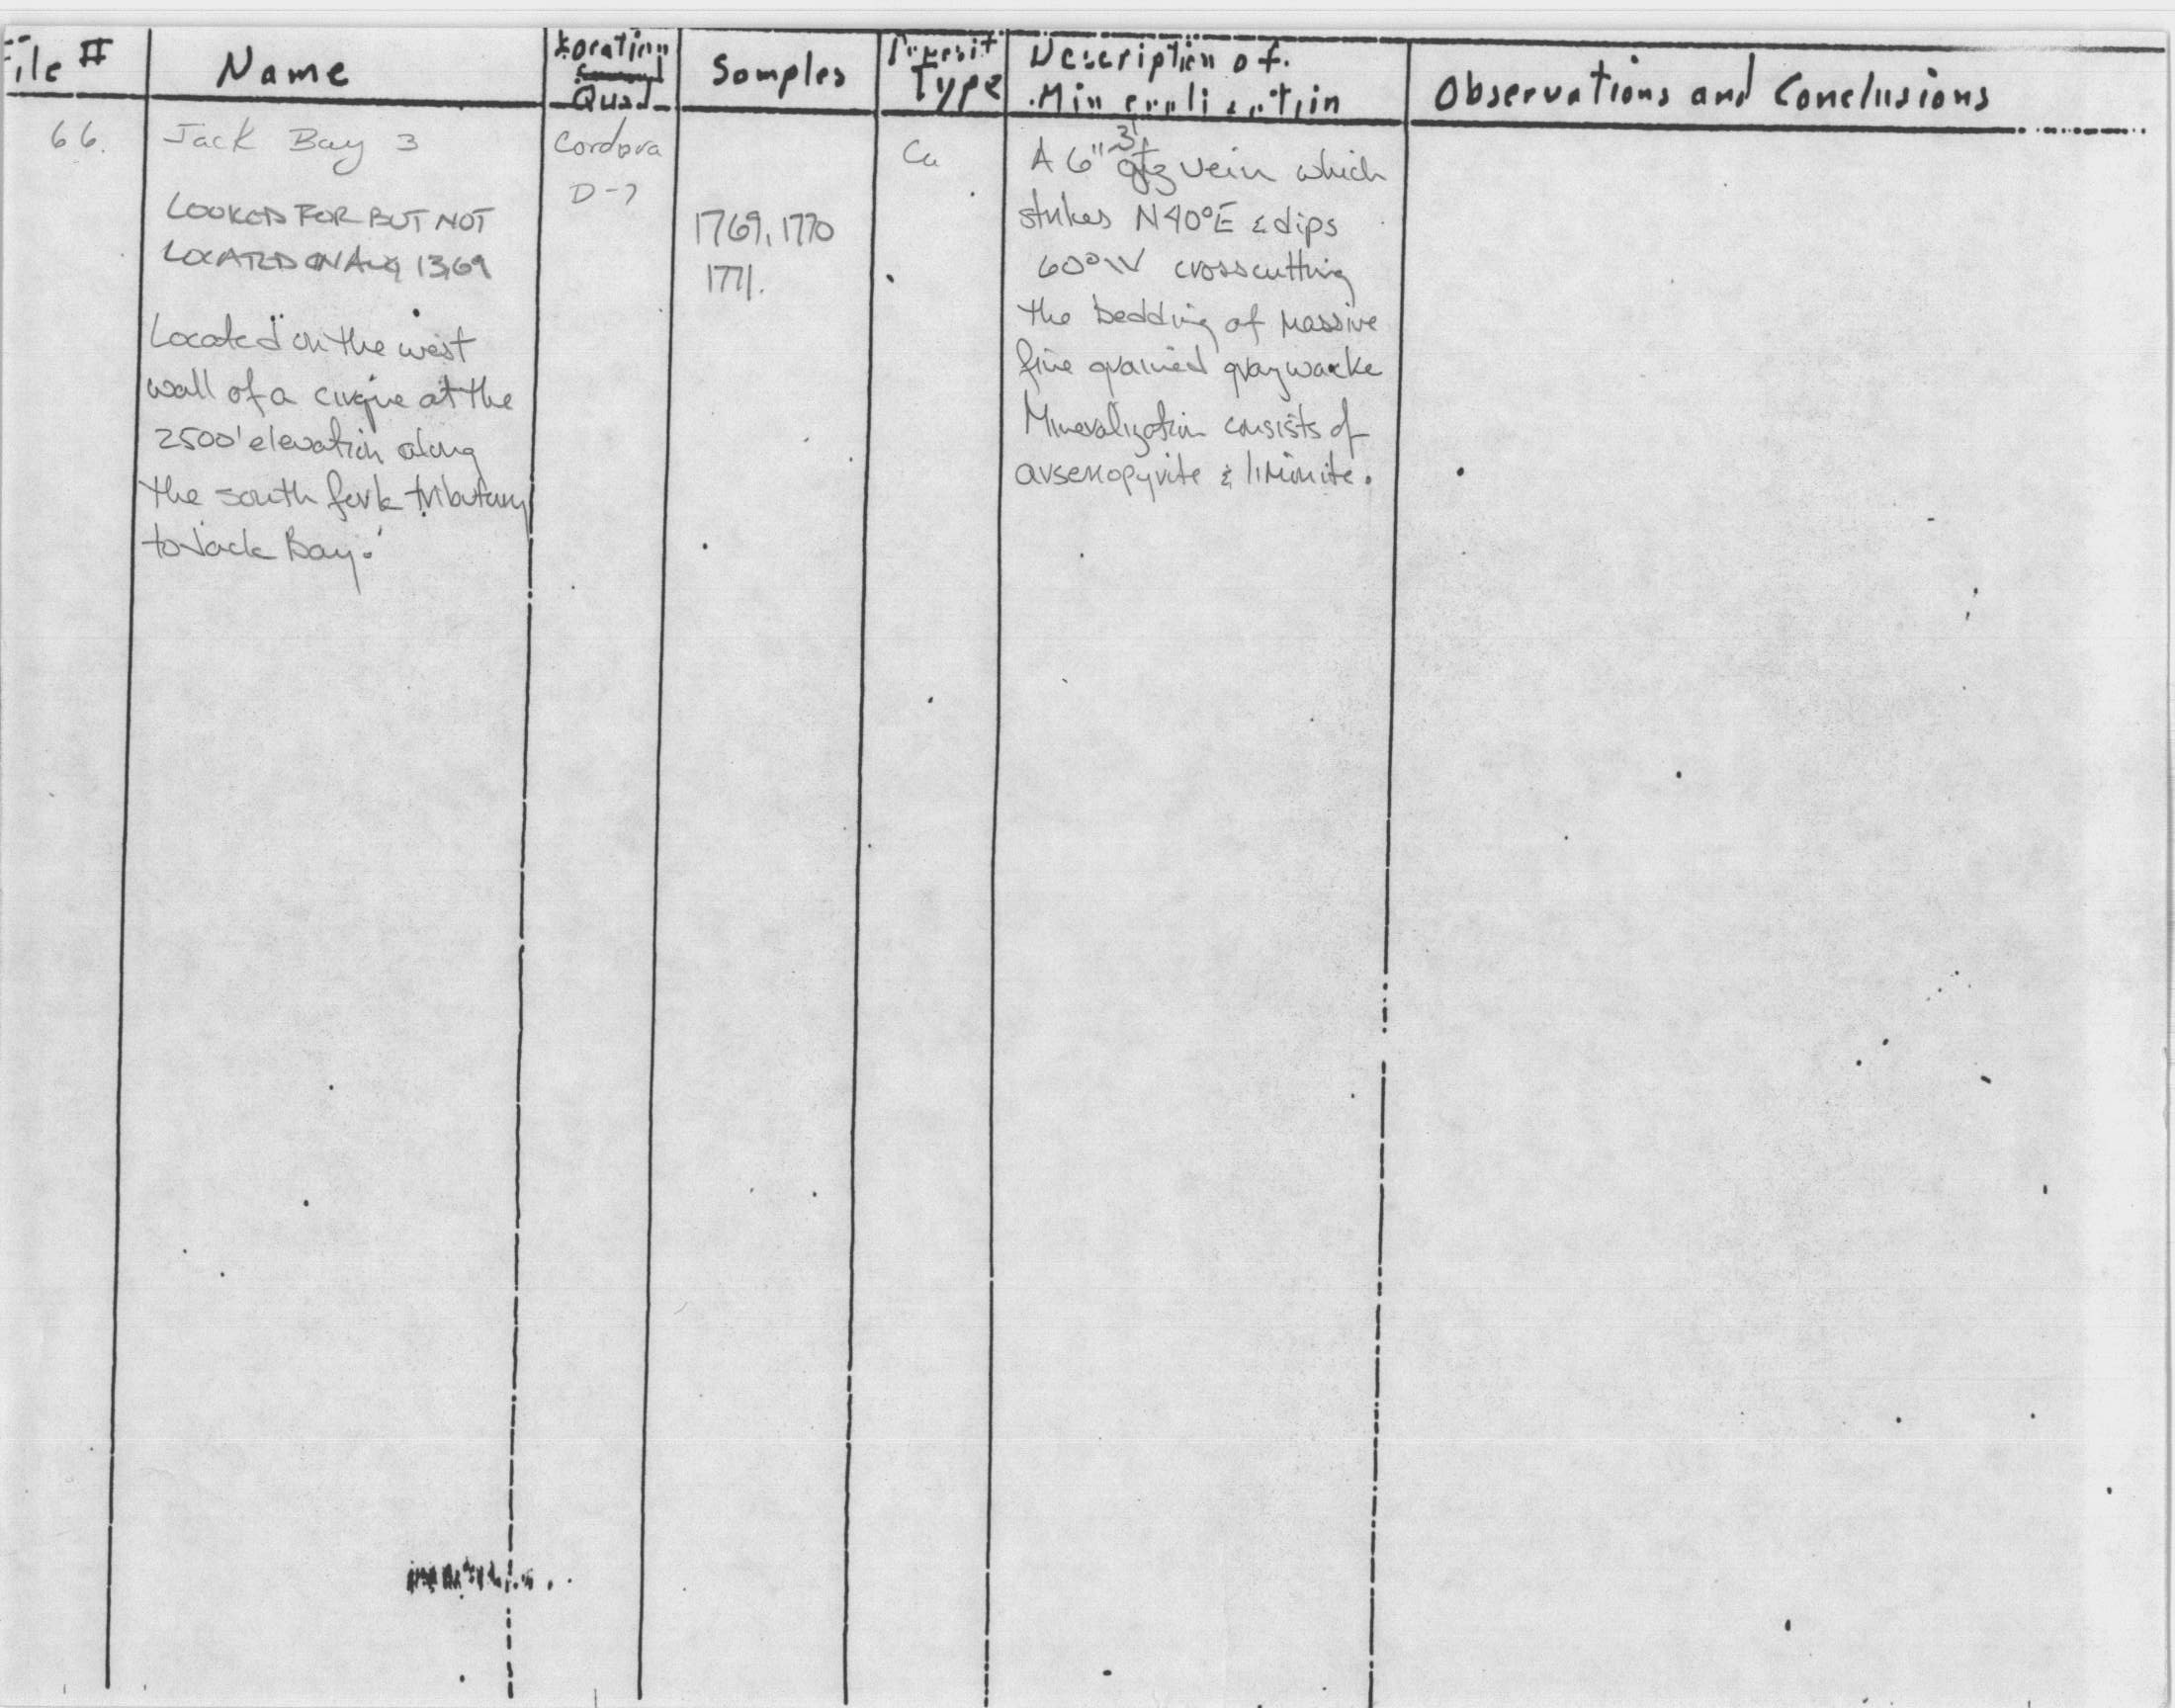 File #
Name
Location
Quad
Samples
Deposit
Type
Description of
Mineralization
Observations and Conclusions
66.
Jack Bay 3
LOOKED FOR BUT NOT
LOCATED ON AUG 13, 69
Located on the west
wall of a cirque at the
2500' elevation along
the south fork tributary
to Jack Bay.
Cordova
D-7
1769, 1770
1771.
Cu
A 6"-3' qtz vein which
strikes N40°E & dips
60°W crosscutting
the bedding of massive
fine grained graywacke
Mineralization consists of
arsenopyrite & limonite.